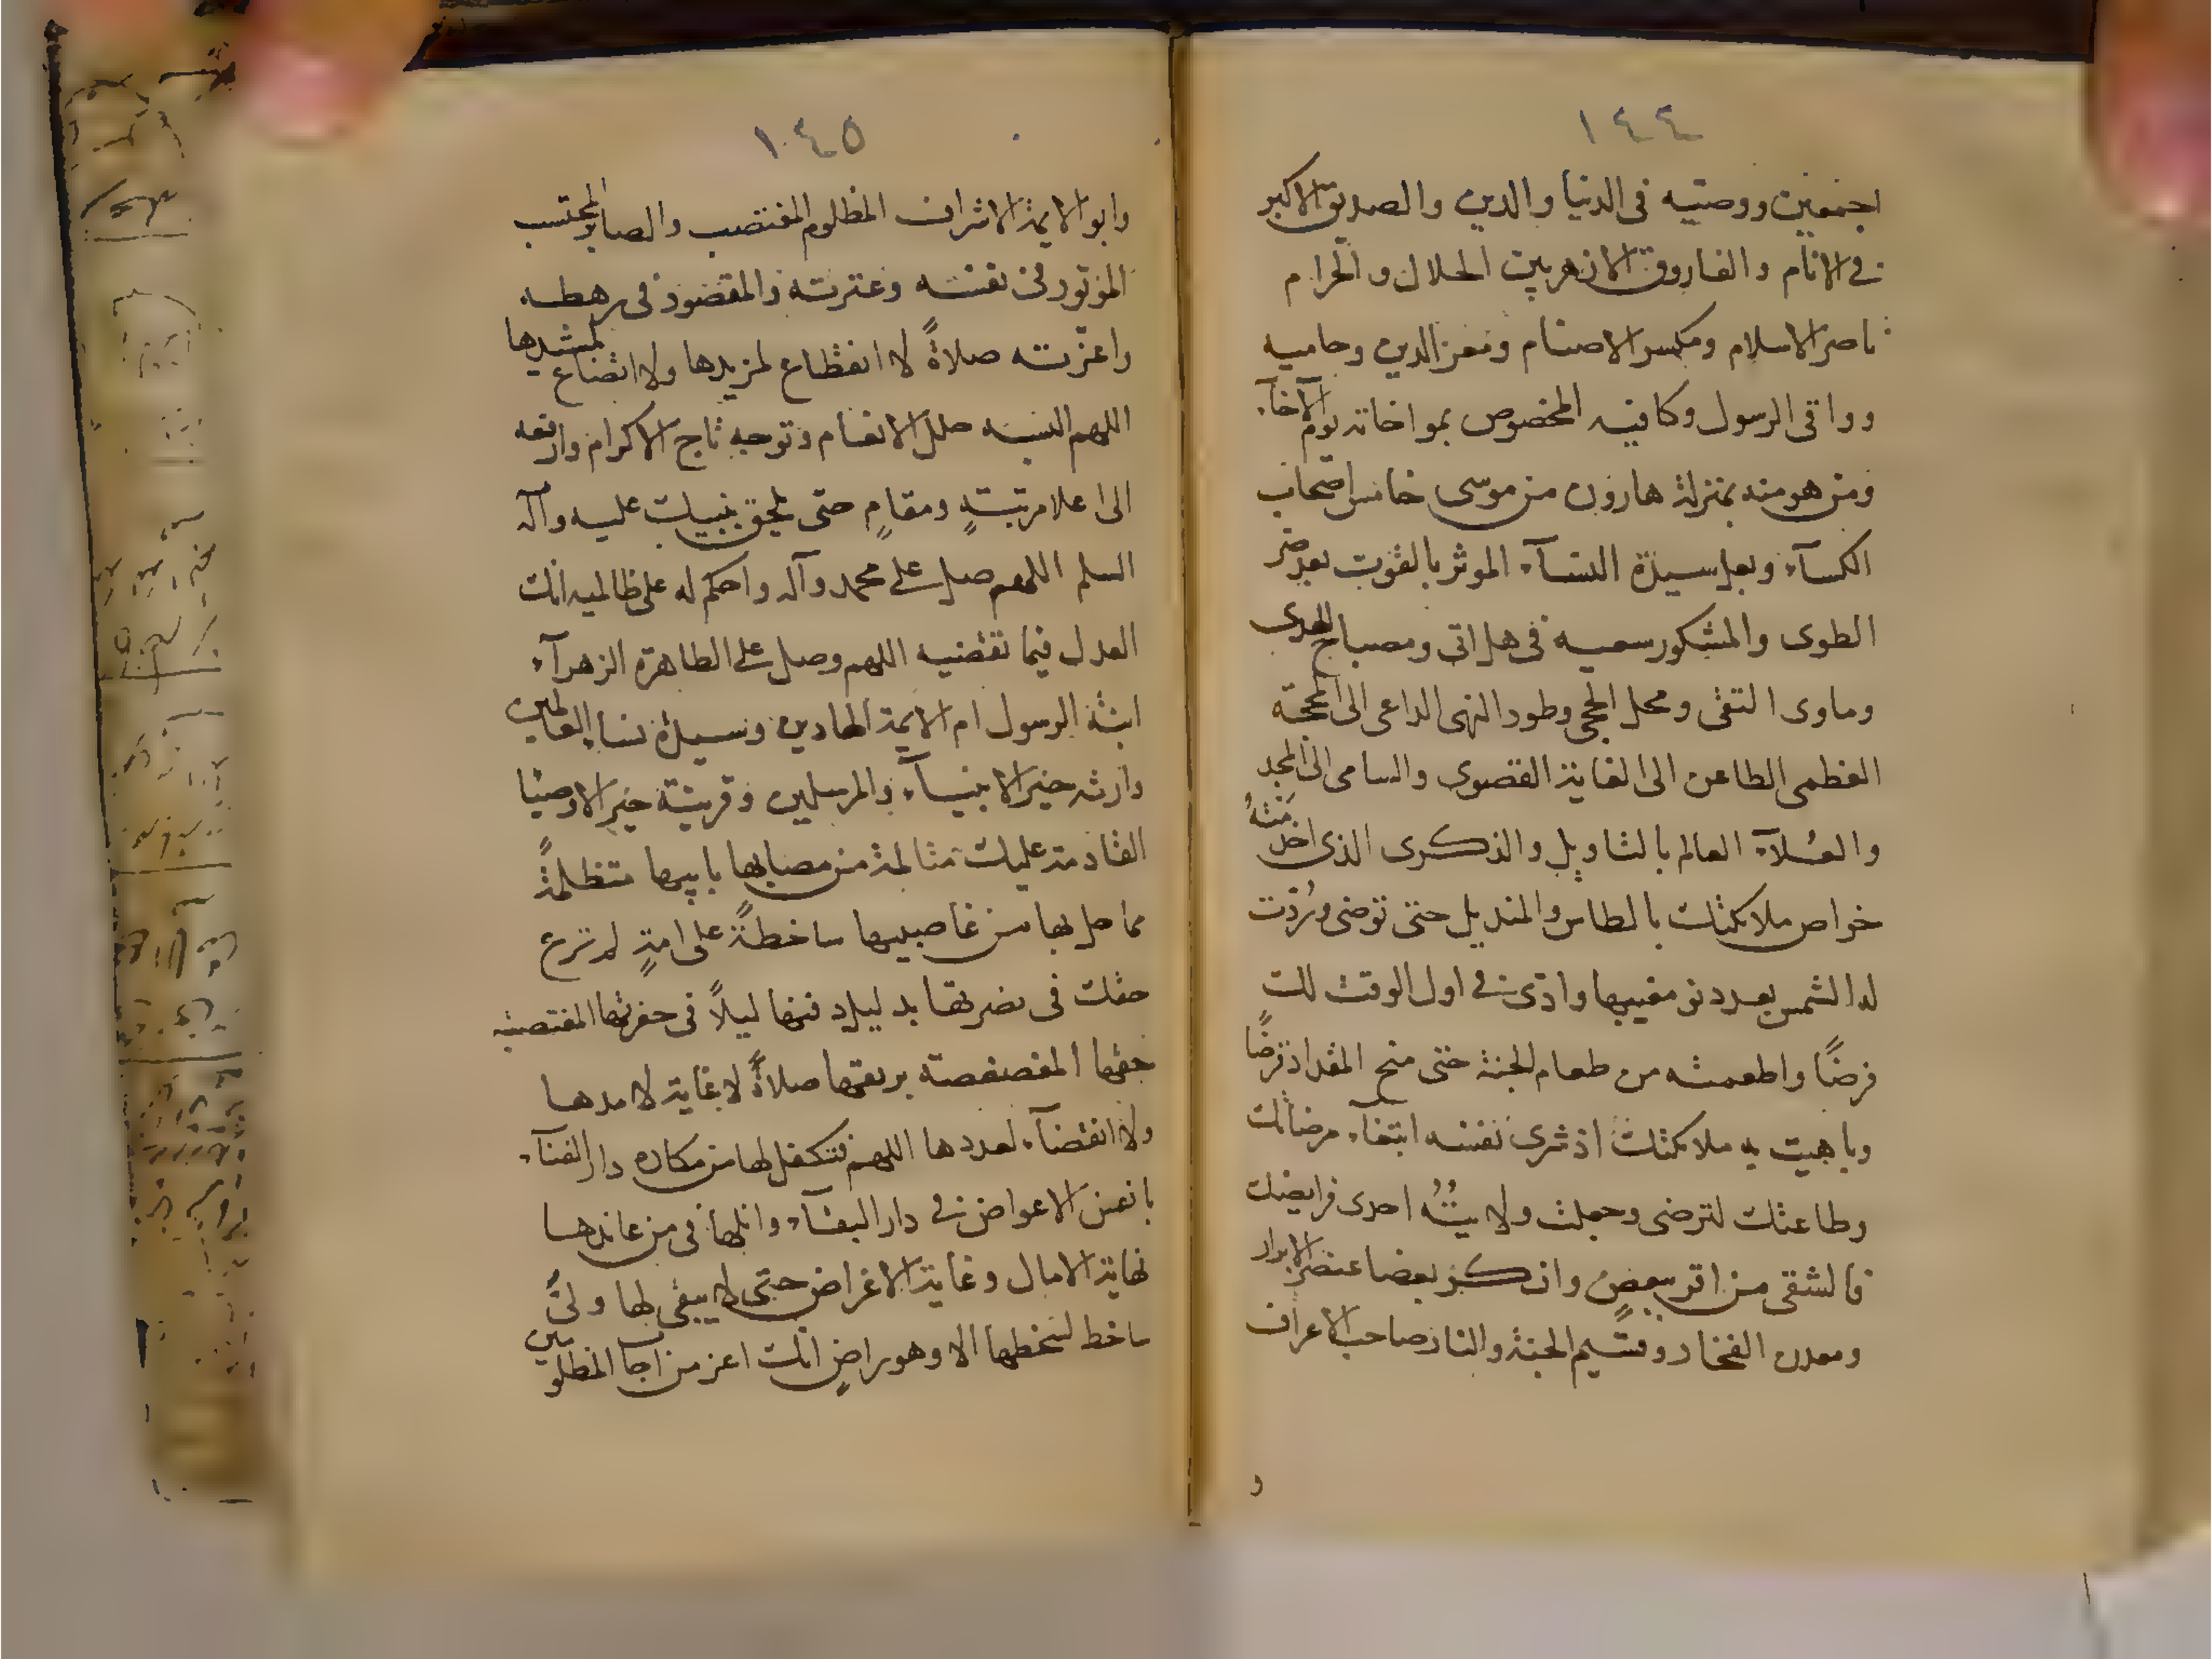 ١٤٤
اجمعين ووصيه فى الدنيا والدين والصديق الاكبر
فى الانام والفاروق الازهر بين الحلال والحرام
ناصر الاسلام ومكسر الاصنام ومعز الدين وحاميه
وواقى الرسول وكافيه المخصوص بمواخاته يوم الآخآء
ومن هو منه بمنزلة هارون من موسى خامس اصحاب
الكسآء وبعل سيدة النسآء الموثر بالقوت بعد ضر
الطوى والمشكور سعيه فى هل اتى ومصباح الهدى
وماوى التقى ومحل الحجى وطود النهى الداعى الى المحجة
العظمى الطاعن الى الغاية القصوى والسامى الى المجد
والعُلآء العالم بالتاويل والذكرى الذى اخدمته
خواص ملائكتك بالطاس والمنديل حتى توضى ورُدّت
له الشمس بعد دنو مغيبها وادى فى اول الوقت لك
فرضًا واطعمته من طعام الجنة حتى منح المقداد قرضًا
وباهيت به ملائكتك اذ شرى نفسه ابتغآء مرضاتك
وطاعتك لترضى وجعلت ولايتُهُ احدى فرايضك
فالشقى من اقر ببعضٍ وانكر بعضا عنصر الابرار
ومعدن الفخار وقسيم الجنة والنار صاحب الاعراف
و
١٤٥
وابو الايمة الاشراف المظلوم المغتصب والصابر المحتسب
الموتور فى نفسه وعترته والمقصود فى رهطه
واعزته صلاةً لا انقطاع لمزيدها ولا اتضاع لمشيدها
اللهم البسه حلل الانعام وتوجه تاج الاكرام وارفعه
الى اعلا مرتبةٍ ومقامٍ حتى يلحق بنبيك عليه وآله
السلم اللهم صل على محمد وآله واحكم له على ظالميه انك
العدل فيما تقضيه اللهم وصل على الطاهرة الزهرآء
ابنة الرسول ام الايمة الهادين وسيدة نساء العالمين
وارثه خير الانبيآء والمرسلين وقرينة خير الاوصيا
القادمة عليك متالمة من مصابها بابيها متظلمةً
مما حل بها من غاصبيها ساخطةً على امةٍ لم ترع
حقك فى نصرتها بدليل دفنها ليلاً فى حفرتها المغتصبه
حقها المغصصة بريقها صلاةً لا غاية لامدها
ولا انقضآء لعددها اللهم فتكفل لها من مكاره دار الفنآء
بانفس الاعواض فى دار البقآء وانلها فى من عاندها
نهاية الامال وغاية الاغراض حتى لا يبقى لها ولىٌ
ساخط لسخطها الا وهو راضٍ انك اعز من اجا المظلومين